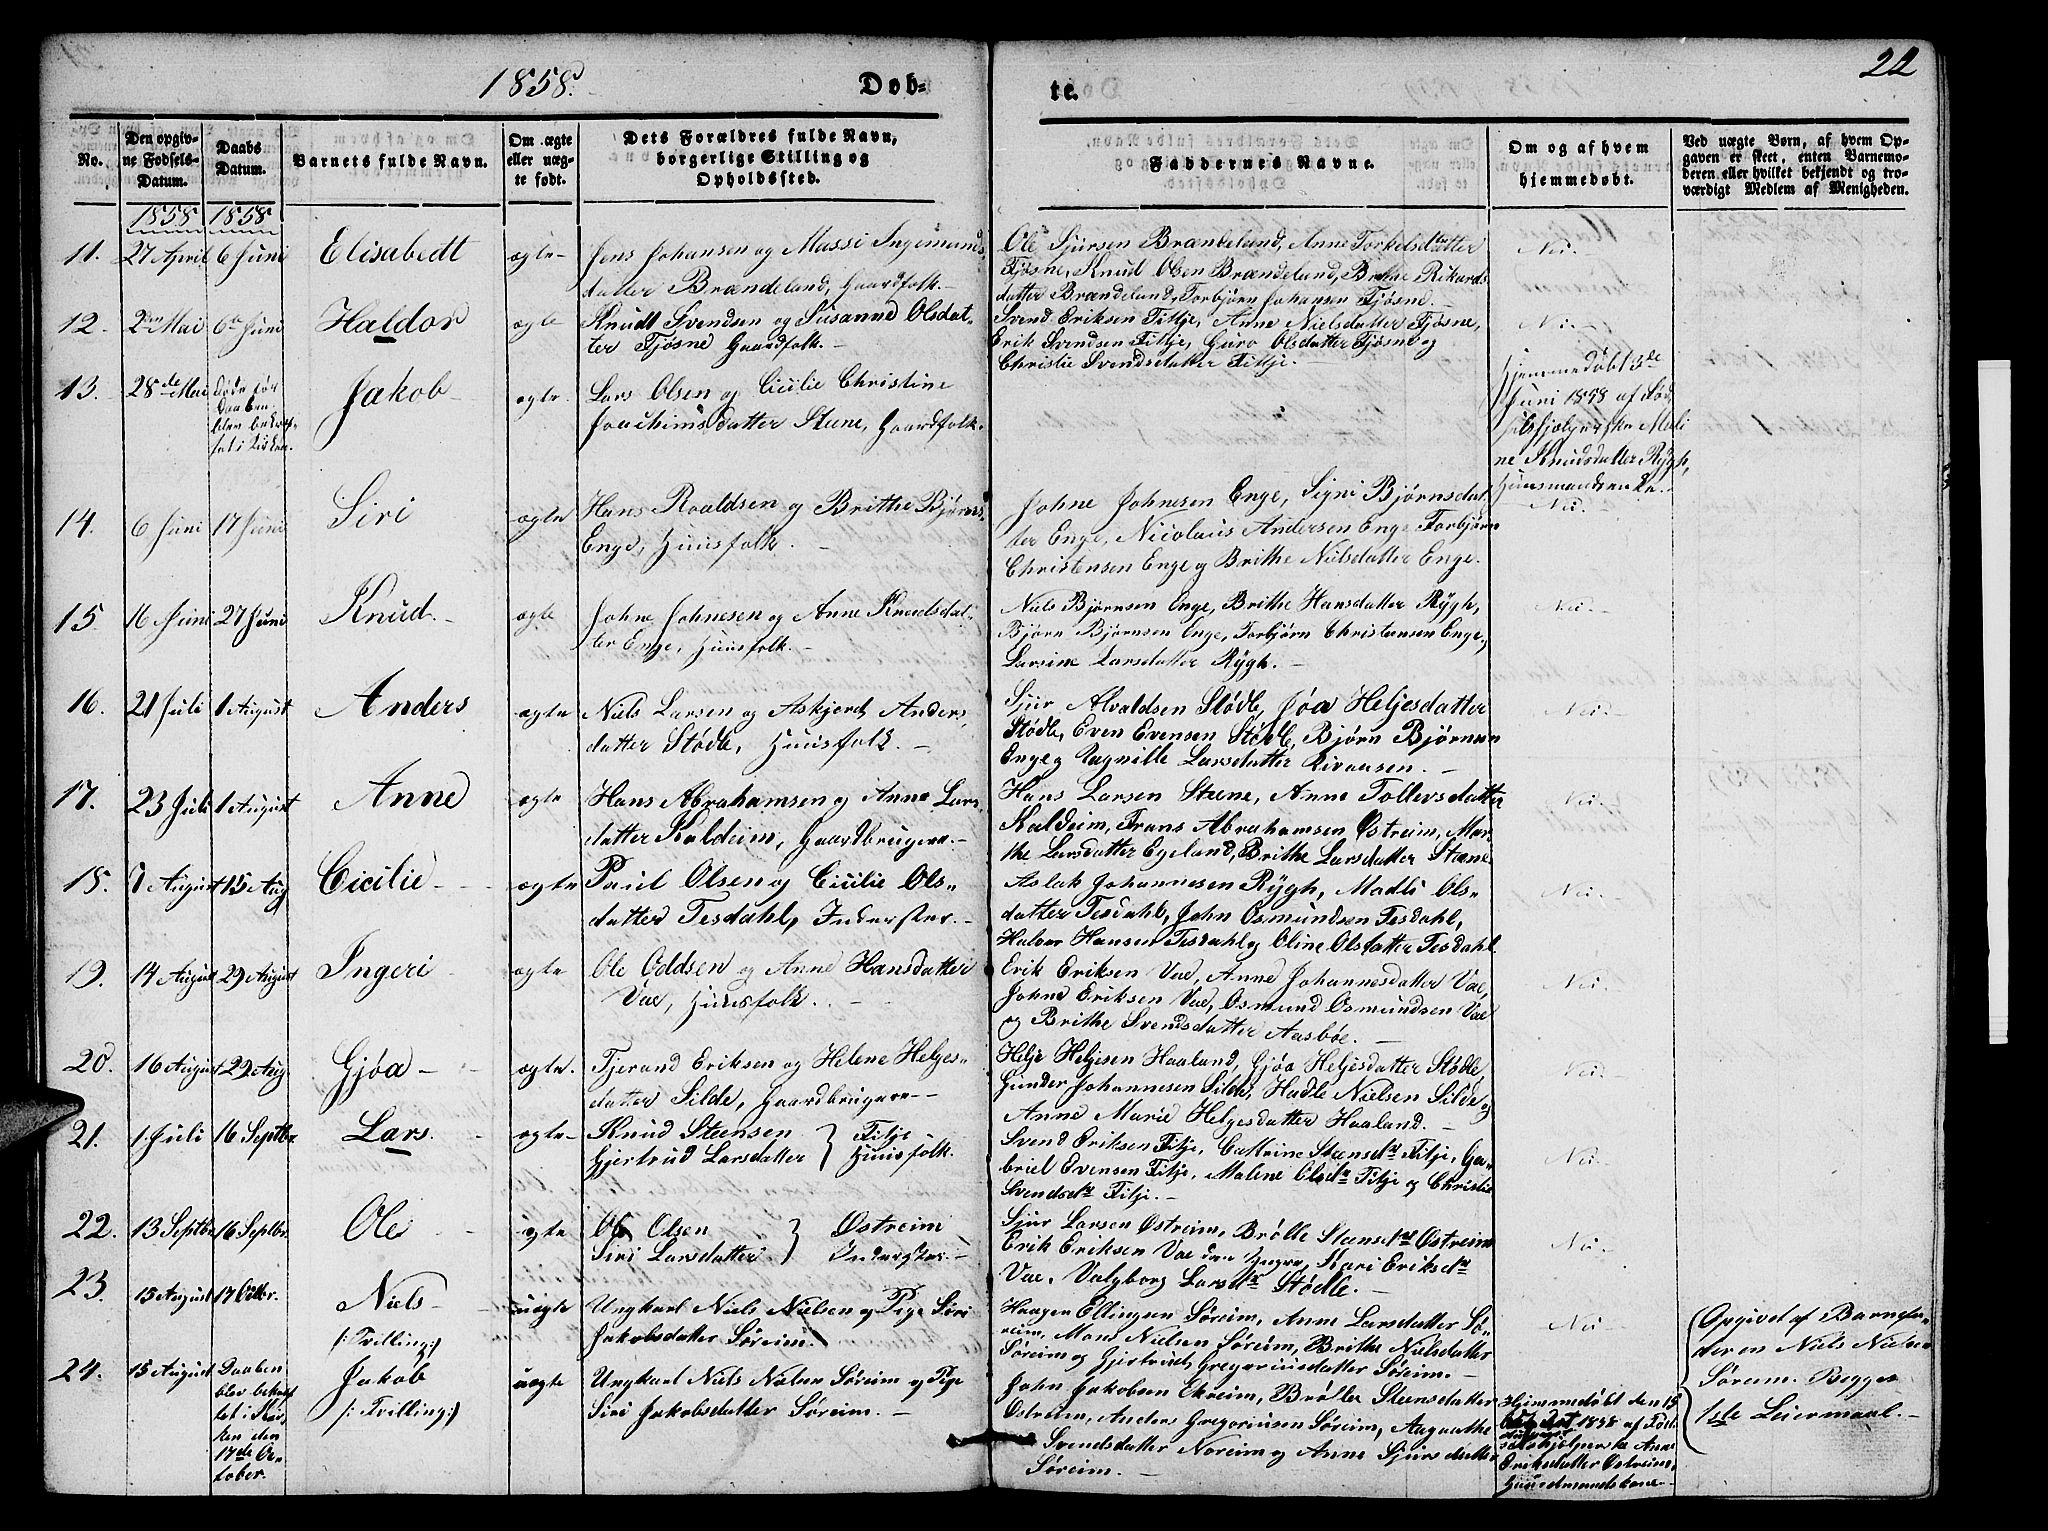 22
1858.
Døb-
te.
No.
Den opgiv-
ne Fødsels-
Datum.
Daabs
Datum.
Barnets fulde Navn.
Om ægte
eller uæg-
te født.
Dets Forældres fulde Navn,
borgerlige Stilling og
Opholdssted.
Faddernes Navne.
Om og af hvem
hjemmedøbt.
Ved uægte Børn, af hvem Op-
gaven er skeet, enten Barnemo-
deren eller hvilket bekjendt og tro-
værdigt Medlem af Menigheden.
1858 1858
11. 27 April 6 Juni Elisabedt ægte- Jens Johansen og Massi Ingemunds-
datter Brændeland, Gaardfolk.-
Ole Sjursen Brændeland, Anne Torkelsdatter
Tjøsne, Knud Olsen Brændeland, Brithe Rikards-
datter Brændeland, Torbjørn Johansen Tjøsne.-
Nei.-
12. 2den Mai 6te Juni Haldor ægte Knudt Svendsen og Susanne Olsdat-
ter Tjøsne Gaardfolk.-
Svend Eriksen Fittje, Anne Nielsdatter Tjøsne,
Erik Svendsen Fittje, Guro Olsdatter Tjøsne og
Christie Svendsdatter Fittje.-
Nei.-
13. 28de Mai døde før
Daaben
blev bekræf-
tet i Kirken.
Jakob- ægte. Lars Olsen og Cicilie Christine
Joachimsdatter Steene, Gaardfolk.
Hjemmedøbt 3de
Juni 1858 af Fød-
selshjelperske Mali-
ne Knudsdatter Rygh,
Huusmandsenke.-
14. 6 Juni 17 Juni Siri ægte Hans Roaldsen og Brithe Bjørns-
Enge, Huusfolk.-
Johne Johnesen Enge, Signi Bjørnsdat-
ter Enge, Nicolaus Andersen Enge Torbjørn
Christensen Enge og Brithe Nielsdatter Enge.
Nei.-
15. 16 Juni 27 Juni Knud.- ægte Johne Johnesen og Anne Knudsdat-
ter Enge, Huusfolk.-
Niels Bjørnsen Enge, Brithe Hansdatter Rygh,
Bjørn Bjørnsen Enge, Torbjørn Christensen Enge,
Larsine Larsdatter Rygh.-
Nei.-
16. 21 Juli 1 August Anders ægte Niels Larsen og Askjerd Anders-
datter Stødle, Huusfolk.-
Sjur Alvaldsen Stødle, Jøa Heljesdatter
Stødle, Even Evensen Stødle, Bjørn Bjørnsen
Enge og Ragnille Larsdatter.-
Nei.-
17. 23 Juli 1 August Anne ægte Hans Abrahamsen og Anne Lars-
datter Kaldeim, Gaardbrugere.-
Hans Larsen Steene, Anne Tollevsdatter
Kaldeim, Frans Abrahamsen Østreim, Mar-
the Larsdatter Egeland, Brithe Larsdatter Steene.
Nei.-
18. August 15 Aug Cicilie- ægte Paul Olsen og Cicilie Ols-
datter Tesdahl, Inderster.-
Aslak Johannesen Rygh, Madli Ols-
datter Tesdahl, John Osmundsen Tesdahl,
Halvor Hansen Tesdahl og Oline Olsdatter Tesdahl.
Nei.-
19. 14 August 29 August Ingeri ægte Ole Oddsen og Anne Hansdatter
Vae, Huusfolk.-
Erik Eriksen Vae, Anne Johannesdatter Vae,
Johne Eriksen Vae, Osmund Osmundsen Vae
og Brithe Svendsdatter Aasbøe.
Nei.-
20. 16 August 29 Aug. Gjøa- ægte. Tjerand Eriksen og Helene Helges-
datter Silde, Gaardbrugere-
Helje Heljesen Haaland, Gjøa Heljesdatter Stødle
Gunder Johannesen Silde, Hadle Nielsen Silde og
Anne Marie Helgesdatter Haaland.-
Nei.-
21. 1 Juli 16 Septbr Lars. ægte- Knud Steensen
Gjertrud Larsdatter } Fitje
Huusfolk.
Svend Eriksen Fitje, Cattrine Steensdtr Fitje, Ga-
briel Evensen Fitje, Malene Olsdtr Fitje og Christie
Svendsdtr Fitje.-
Nei.-
22. 13 Septbr 16 Septbr. Ole ægte Ole Olsen
Siri Larsdatter } Østreim
Inderster.-
Sjur Larsen Østreim, Brølle Steensdtr Østreim
Erik Eriksen Vae den Yngre, Kari Eriksdtr
Vae, Valgborg Larsdtr Stødle.-
Nei.-
23. 15 August 17 Octbr. Niels-
/: Tvilling:/
uægte Ungkarl Niels Nielsen og Pige Siri
Jakobsdatter Søreim.
Haagen Ellingsen Søreim, Anne Larsdatter Sø-
reim, Mons Nielsen Søreim, Brithe Nielsdatter
Søreim og Gjertrud Gregoriusdatter Søreim.
Nei.-
Opgivet af Barnefa-
deren Niels Nielsen
Søreim. Begges
1ste Leiermaal.-
24. 15 August Daaben
blev bekræf
tet i Kir-
ken den
17de Oc-
tober.
Jakob
/: Tvilling:/
uægte Ungkarl Niels Nielsen Søreim og Pige
Siri Jakobsdatter Søreim.-
John Jakobsen Ekreim, Brølle Steensdatter
Østreim, Anders Gregoriusen Søreim, Aagaathe
Svendsdatter Noreim og Anne Sjursdatter
Søreim.-
Hjemmedøbt den 15
August 1858 af Fød-
selshjelperske Anne
Eriksdatter Østreim,
Huusmandskone-